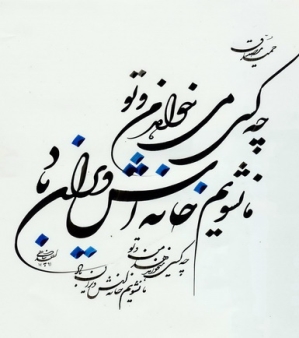 حمید مصدق
چه کسی می خواهد من و تو
ما نشویم خانه اش ویران باد
چه کسی می خواهد من و تو
ما نشویم خانه اش ویران باد